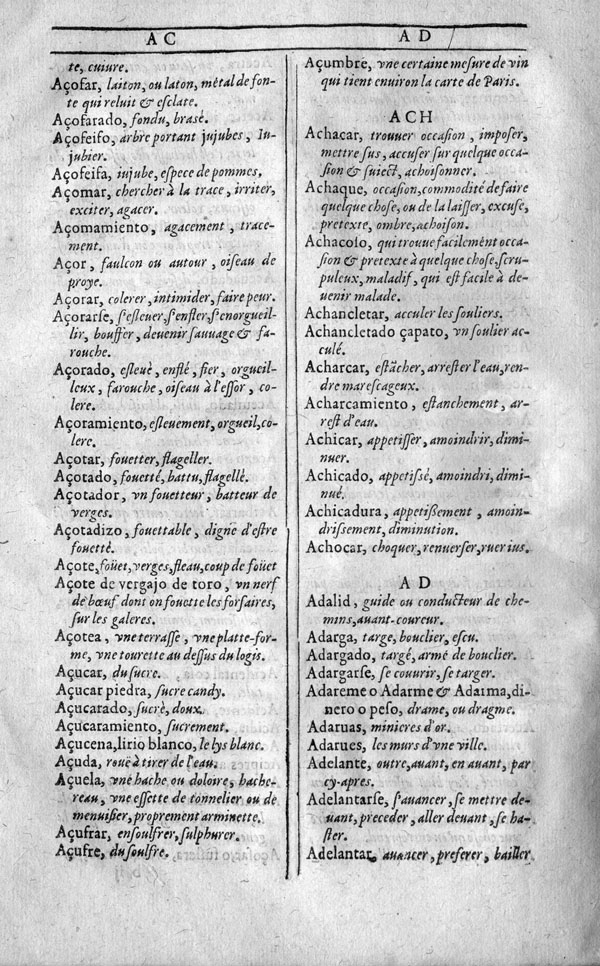 AC
te, cuiure.
Açofar, laiton, ou laton, métal de fon-
te qui reluit & esclate.
Açofarado, fondu, brasé.
Açofeifo, arbre portant jujubes, Iu-
jubier.
Açofeifa, iujube, espece de pommes.
Açomar, chercher à la trace, irriter,
exciter, agacer.
Açomamiento, agacement, trace-
ment.
Açor, faulcon ou autour, oiseau de
proye.
Açorar, colerer, intimider, faire peur.
Açorarse, s'esleuer, s'enfler, s'enorgueil-
lir, bouffer, deuenir sauuage & fa-
rouche.
Açorado, esleuè, enflé, fier, orgueil-
leux, farouche, oiseau à l'essor, co-
lere.
Açoramiento, esleuement, orgueil, co-
lere.
Açotar, fouetter, flageller.
Açotado, fouetté, battu, flagellè.
Açotador, vn fouetteur, batteur de
verges.
Açotadizo, fouettable, digne d'estre
fouettè.
Açote, foüet, verges, fleau, coup de foüet
Açote de vergajo de toro, vn nerf
de bœuf dont on fouette les forsaires,
sur les galeres.
Açotea, vne terrasse, vne platte-for-
me, vne tourette au dessus du logis.
Açucar, du sucre.
Açucar piedra, sucre candy.
Açucarado, sucrè, doux.
Açucaramiento, sucrement.
Açucena, lirio blanco, le lys blanc.
Açuda, rouë à tirer de l'eau.
Açuela, vne hache ou doloire, hache-
reau, vne essette de tonnelier ou de
menuisier, proprement arminette.
Açufrar, ensoulfrer, sulphurer.
Açufre, du soulfre.
AD
Açumbre, vne certaine mesure de vin
qui tient enuiron la carte de Paris.
ACH
Achacar, trouuer occasion, imposer,
mettre sus, accuser sur quelque occa-
sion & suiect, achoisonner.
Achaque, occasion, commodité de faire
quelque chose, ou de la laisser, excuse,
pretexte, ombre, achoison.
Achacoso, qui trouue facilemẽt occa-
sion & pretexte à quelque chose, scru-
puleux, maladif, qui est facile à de-
uenir malade.
Achancletar, acculer les souliers.
Achancletado çapato, vn soulier ac-
culé.
Acharcar, estãcher, arrester l'eau, ren-
dre marescageux.
Acharcamiento, estanchement, ar-
rest d'eau.
Achicar, appetisser, amoindrir, dimi-
nuer.
Achicado, appetissé, amoindri, dimi-
nué.
Achicadura, appetißement, amoin-
drissement, diminution.
Achocar, choquer, renuerser, ruer ius.
AD
Adalid, guide ou conducteur de che-
mins, auant-coureur.
Adarga, targe, bouclier, escu.
Adargado, targé, armé de bouclier.
Adargarse, se couurir, se targer.
Adareme o Adarme & Adarma, di-
nero o peso, drame, ou dragme.
Adaruas, minieres d'or.
Adarues, les murs d'vne ville.
Adelante, outre, auant, en auant, par
cy-apres.
Adelantarse, s'auancer, se mettre de-
uant, preceder, aller deuant, se ha-
ster.
Adelantar, auancer, preferer, bailler